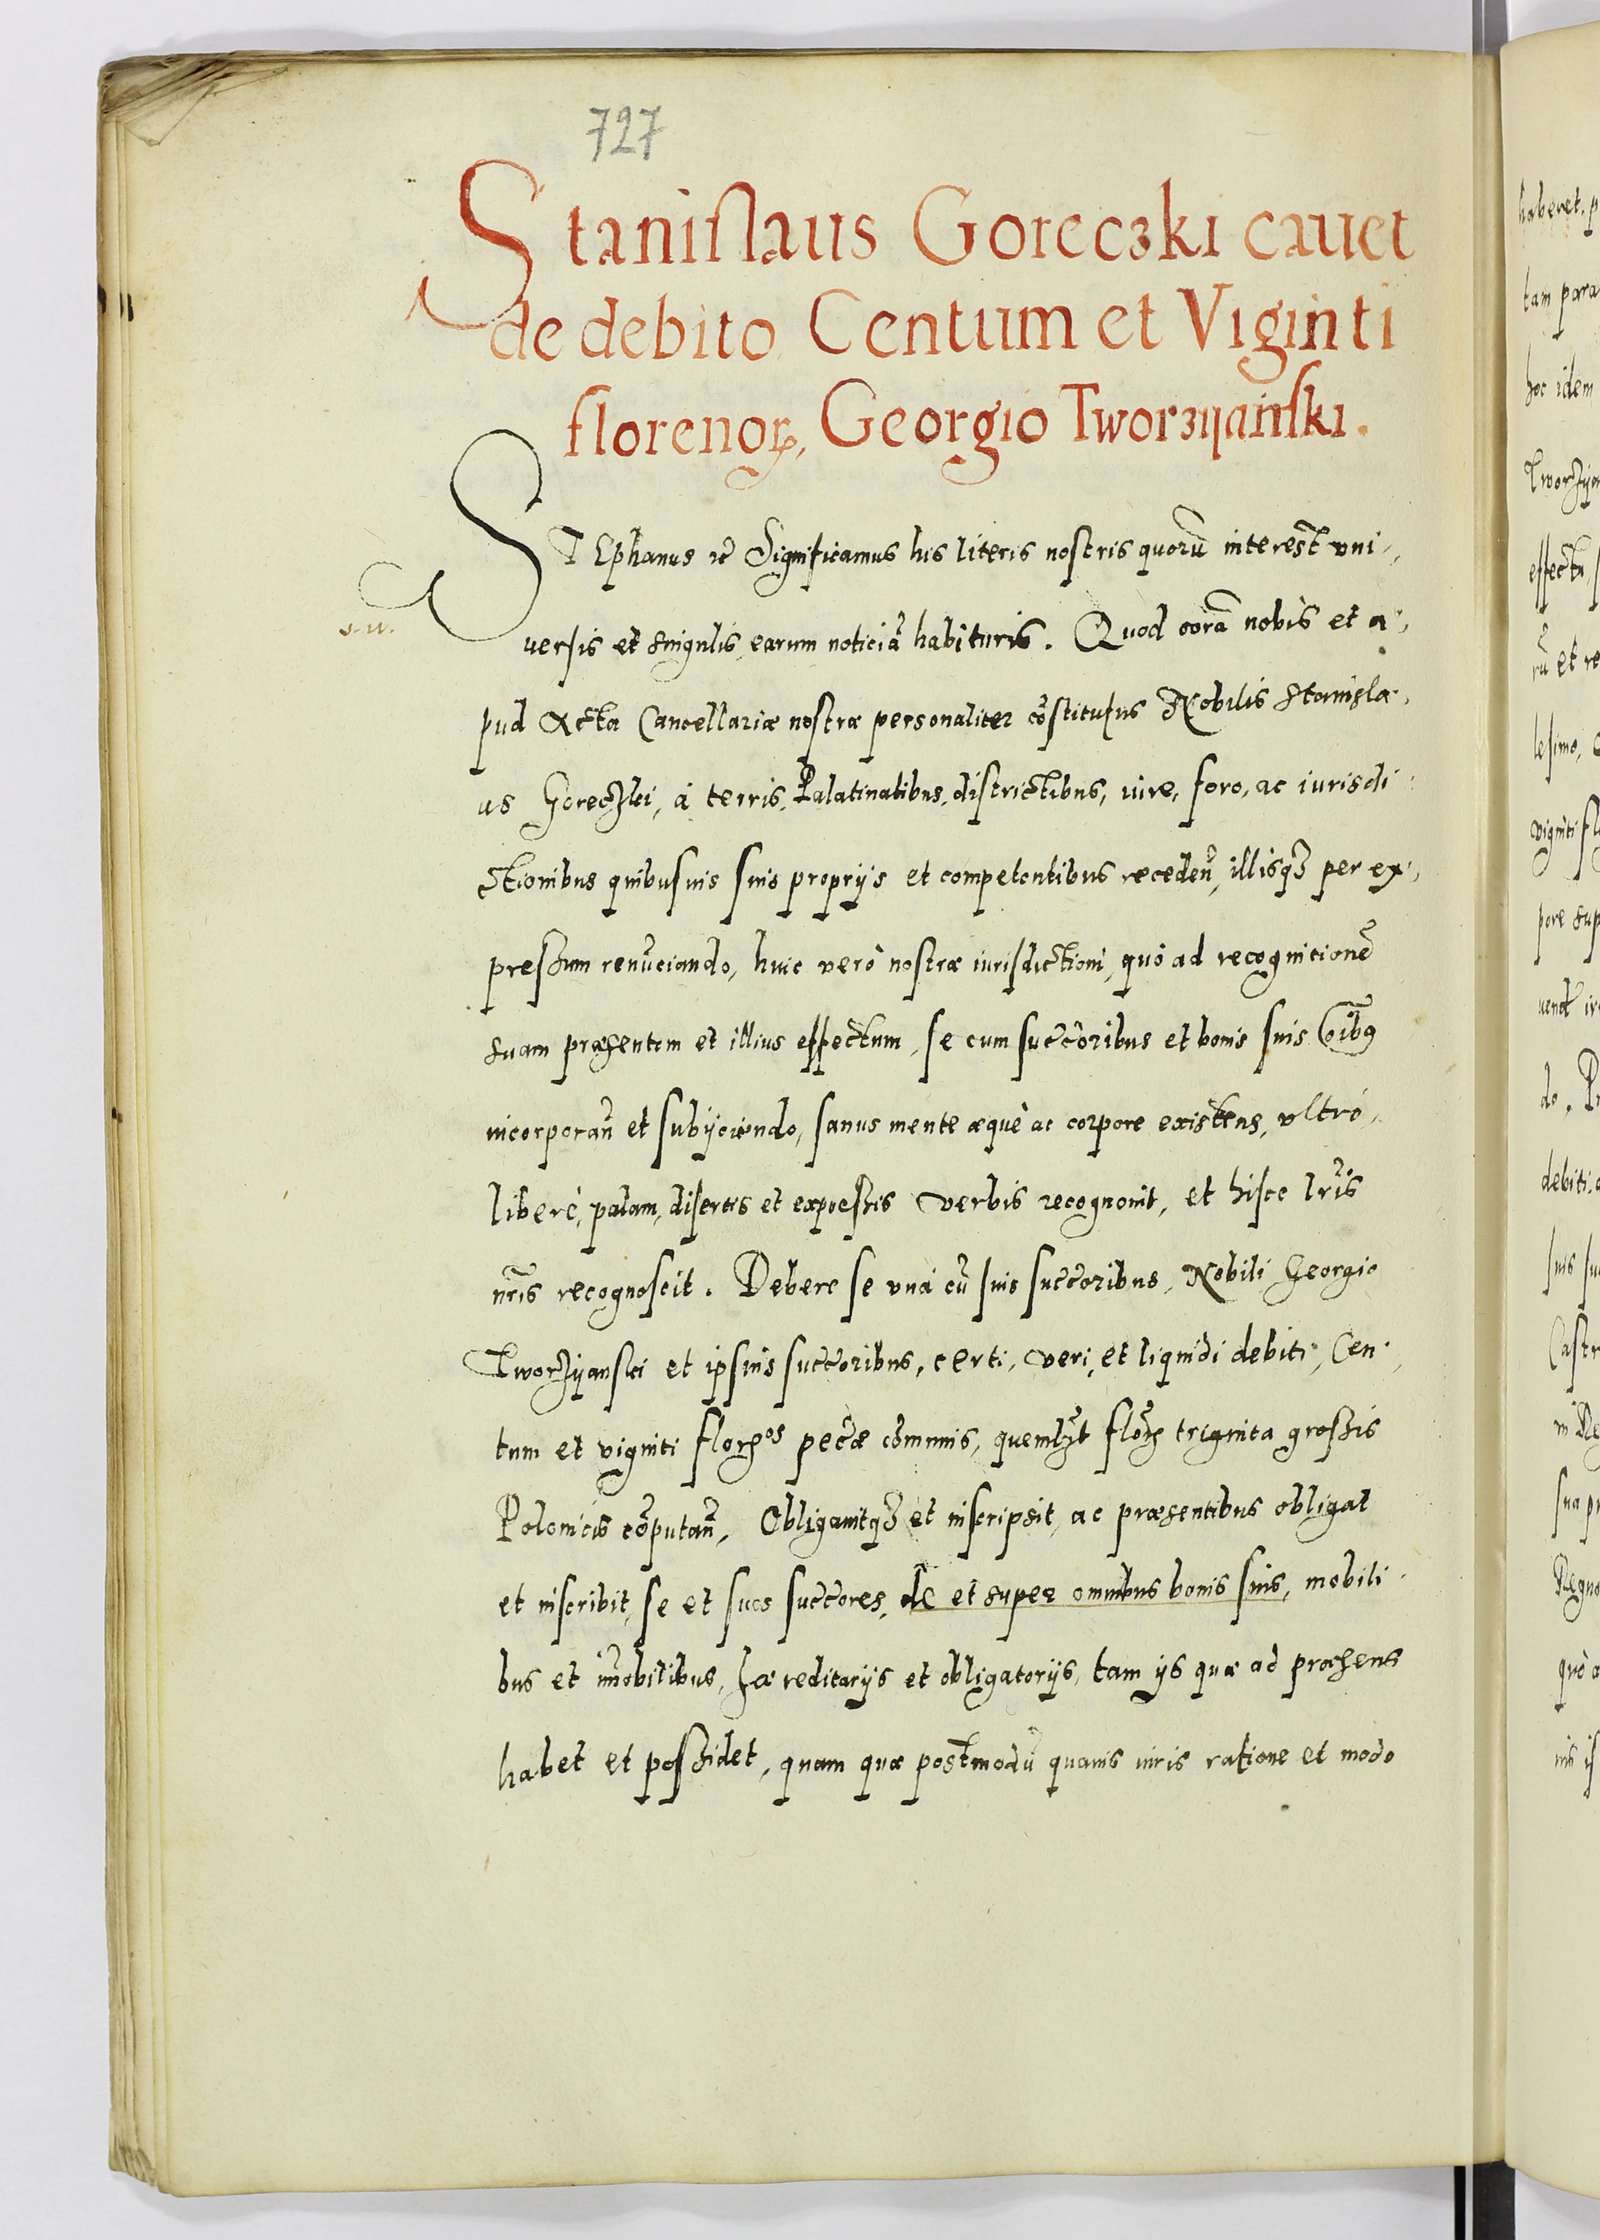 727
Staniſlaus Goreczki cauet
de debito Centum et Viginti
florenoꝝ, Georgio Tworzijanſki.
STEphanus ꝛc̃ Significamus his literis nostris quorũ interest vni-,
uersis et singulis, earum noticiã habituris. Quod corã nobis et a-,
pud Acta Cancellariæ nostræ personaliter cõstitutus Nobilis Stanisla-,
us Goreczki, à terris, Palatinatibus, districtibus, iure, foro, ac iurisdi-
ctionibus quibuſuis ſuis proprijs et competentibus recedeñ, illisqꝫ per ex-,
preſsum renũciando, huic verò nostræ iuriſdictioni, quò ad recognitionẽ
suam præsentem et illius effectum, ſe cum ſuccõribus et bonis ſuis õibꝯ
incorporañ et ſubijciendo, ſanus mente æquè ac corpore existens, vltrò,
liberè, palam, diſertis et expreſsis verbis recognouit, et hiſce lr̃is
nr̃is recognoſcit. Debere ſe vnà cũ ſuis ſuccõribus, Nobili Georgio
Tworzijanſki et ipſius ſuccõribus, certi, veri, et liquidi debiti, Cen-,
tum et viginti florẽos pecũæ cõmunis, quemlꝫt flõꝝ triginta groſsis
Polonicis cõputañ, Obligauitqꝫ et inſcripsit, ac præsentibus obligat
et inſcribit, ſe et ſuos ſuccõres, de et super omnibus bonis ſuis, mobili-
bus et im̃obilibus, hæreditarijs et obligatorijs, tam ijs quæ ad præsens
habet et poſsidet, quam quæ postmodũ quauis iuris ratione et modo